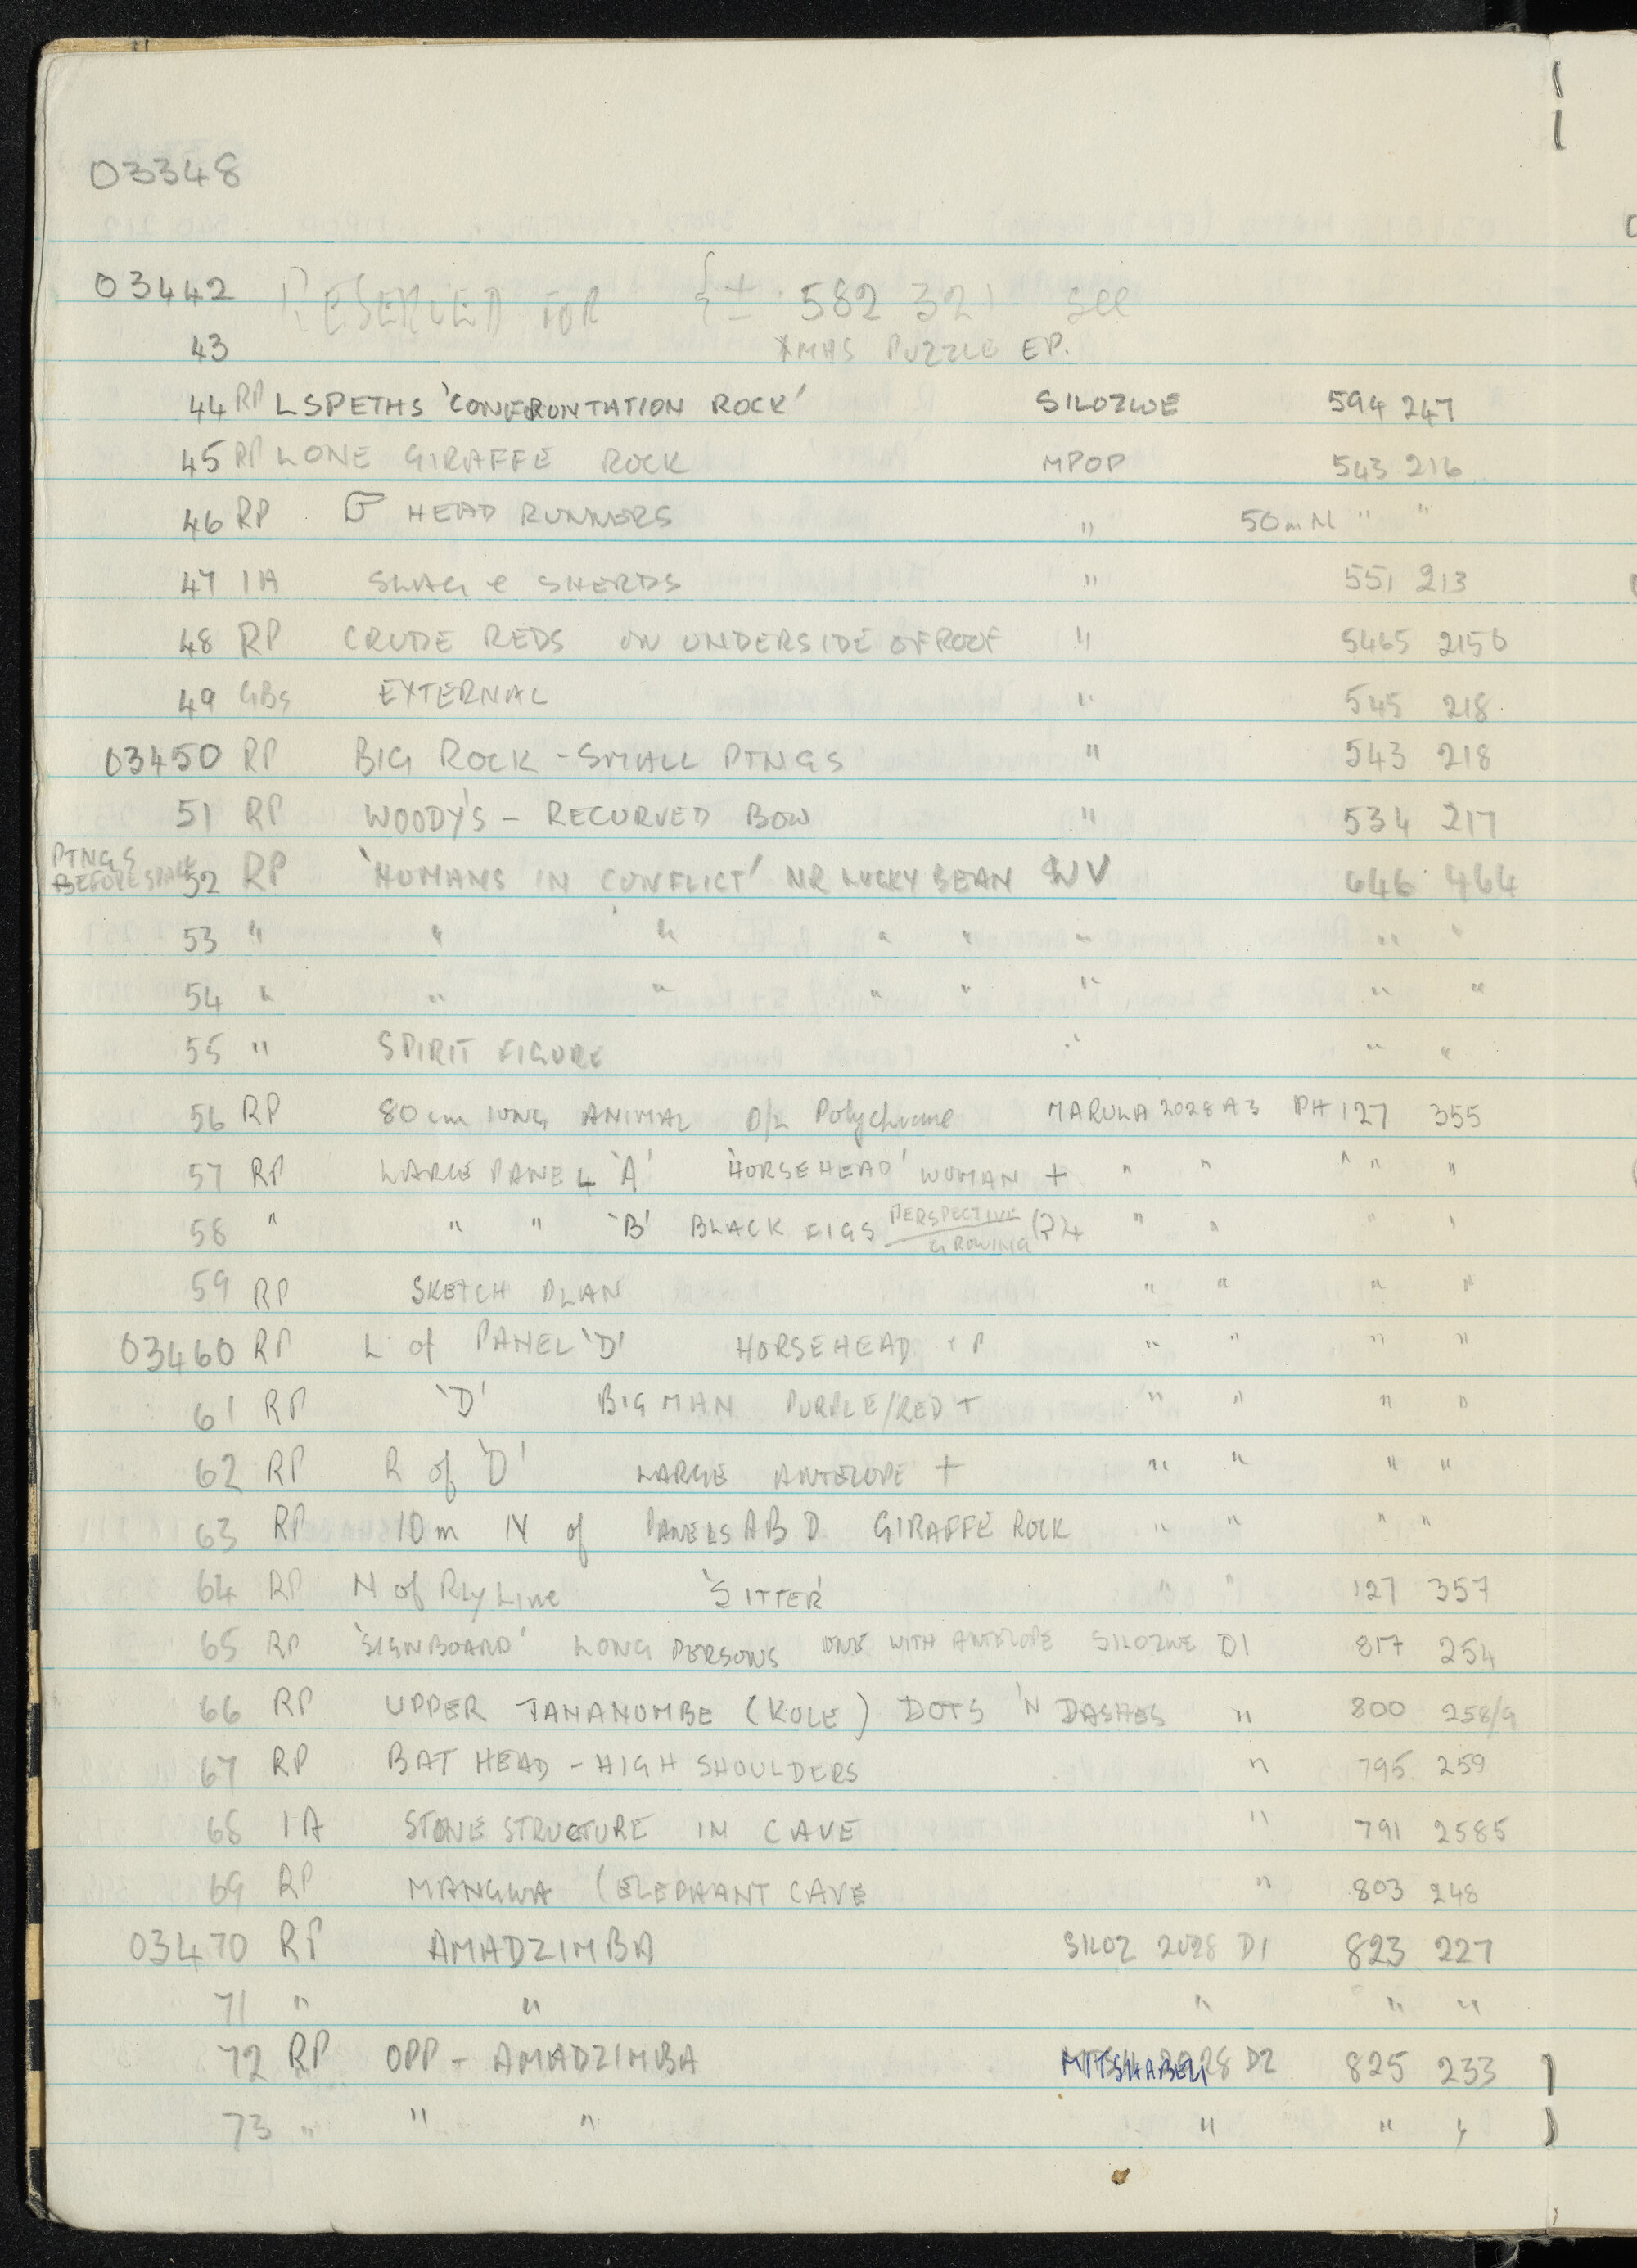 03348
03442 RESERVED FOR { ± 582 321 see
43 XMAS PUZZLE EP.
44 RP LSPETHS 'CONFRONTATION ROCK' SILOZWE 594 247
45 RP LONE GIRAFFE ROCK MPOP 543 216
46 RP HEAD RUNNERS " 50m N " "
47 IA SLAG & SHERDS " 551 213
48 RP CRUDE REDS ON UNDERSIDE OF ROOF " 5465 2150
49 GBs EXTERNAL " 545 218
03450 RP BIG ROCK - SMALL PTNGS " 543 218
51 RP WOODY'S - RECURVED BOW " 534 217
PTNGS
BEFORE 52 RP 'HUMANS IN CONFLICT' NR LUCKY BEAN WV 646 464
53 " " " " " " " "
54 " " " " " " " "
55 " SPIRIT FIGURE " " "
56 RP 80cm LONG ANIMAL D/L Polychrome MARULA 2028 A3 PH 127 355
57 RP LARGE PANEL 'A' 'HORSEHEAD' WOMAN + " " " " "
58 " " " 'B' BLACK FIGS PERSPECTIVE/GROWING (?) + " " " "
59 RP SKETCH PLAN " " " "
03460 RP L of PANEL 'D' HORSEHEAD + P " " " "
61 RP 'D' BIG MAN PURPLE/RED + " " " "
62 RP R of 'D' LARGE ANTELOPE + " " " "
63 RP 10m N of PANELS A B D GIRAFFE ROCK " " " "
64 RP N of Rly Line 'SITTER' " " 127 357
65 RP 'SIGNBOARD' LONG PERSONS ONE WITH ANTELOPE SILOZWE D1 817 254
66 RP UPPER JANANOMBE (KOLE) DOTS 'N DASHES " 800 258/9
67 RP BAT HEAD - HIGH SHOULDERS " 795 259
68 IA STONE STRUCTURE IN CAVE " 791 2585
69 RP MANGWA (ELEPHANT CAVE " 803 248
03470 RP AMADZIMBA SILOZ 2028 D1 823 227
71 " " " " "
72 RP OPP - AMADZIMBA MTSHABEZI D2 825 233
73 " " " " " "